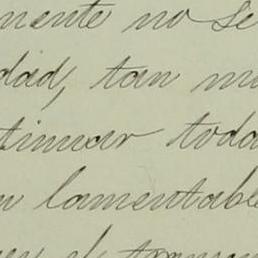 mente no se
dad, tan
tinuar toda
lamentable
el